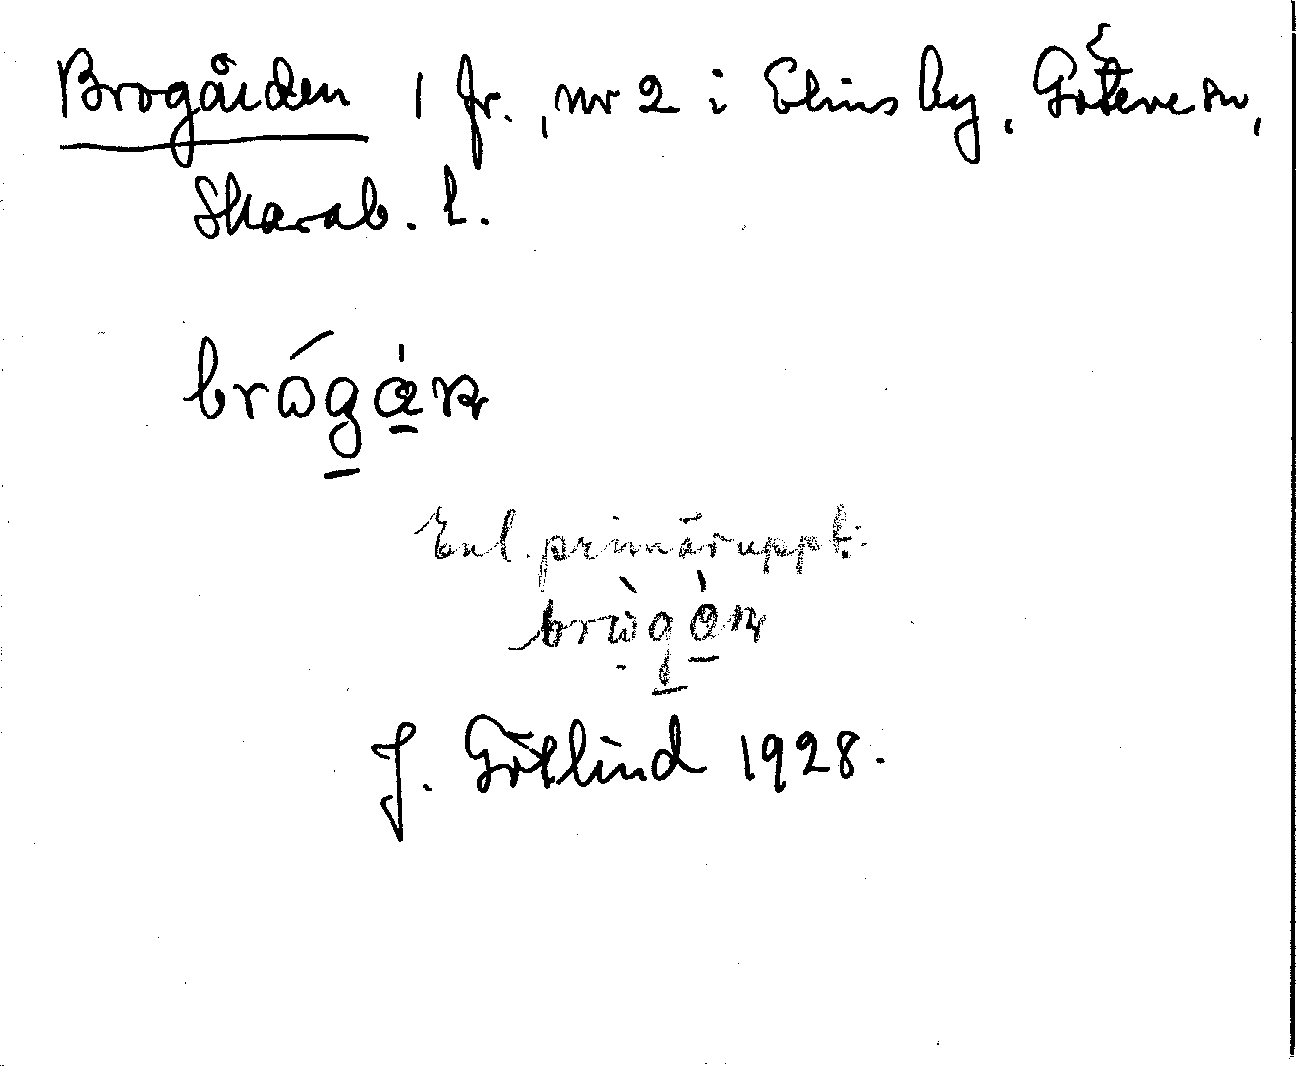 Brogården 1 fr., nr 2 i Elins by, Götene sn,
Skarab. l.
brógán
Enl. primäruppt.
brògán
J. Götlind 1928.